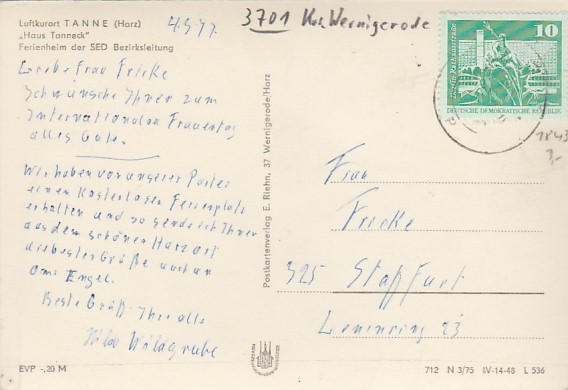 Luftkurort TANNE (Harz)
„Haus Tanneck"
Ferienheim der SED Bezirksleitung
4.3.77.
3701 Kr. Wernigerode
10
DEUTSCHE DEMOKRATISCHE REPUBLIK
1843
3,-
Liebe Frau Fricke
Ich wünsche Ihnen zum
Internationalen Frauentag
alles Gute.
Wir haben von unserer Partei
einen kostenlosen Ferienplatz
erhalten und so sende ich Ihnen
aus dem schönen Harzort
die besten Grüße auch an
Omi Engel.
Beste Grüße Ihre alle
Wildgrube
Postkartenverlag E. Riehn, 37 Wernigerode/Harz
Frau
Fricke
325 Staßfurt
Leninring 23
EVP -,20 M
712 N 3/75 IV-14-48 L 536